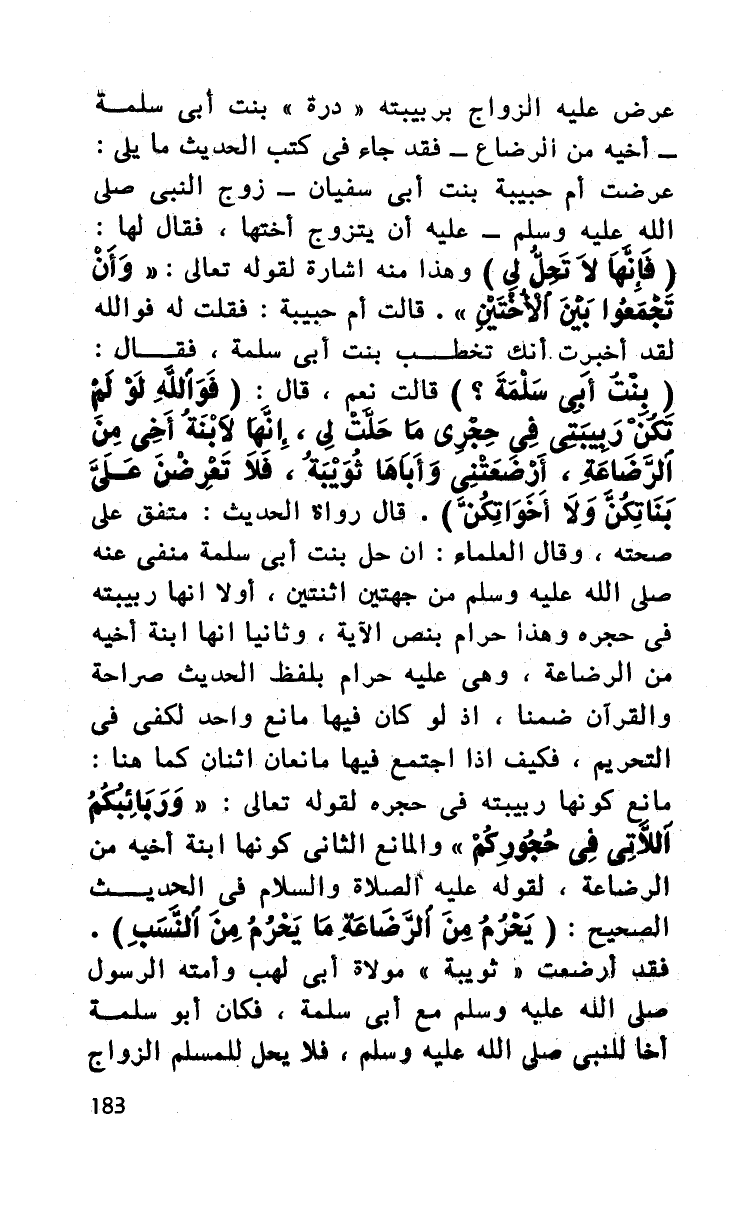 عرض عليه الزواج بربيبته « درة » بنت أبى سلمــة
ــ أخيه من الرضاع ــ فقد جاء فى كتب الحديث ما يلى :
عرضت أم حبيبة بنت أبى سفيان ــ زوج النبى صلى
الله عليه وسلم ــ عليه أن يتزوج أختها ، فقال لها :
( فَإِنَّهَا لاَ تَحِلُّ لِي ) وهذا منه اشارة لقوله تعالى : « وَأَنْ
تَجْمَعُوا بَيْنَ ٱلْأُخْتَيْنِ » . قالت أم حبيبة : فقلت له فوالله
لقد أخبرت أنك تخطــــب بنت أبى سلمة ، فقــــال :
( بِنْتُ أَبِي سَلْمَةَ ؟ ) قالت نعم ، قال : ( فَوَٱللَّهِ لَوْ لَمْ
تَكُنْ رَبِيبَتِي فِي حِجْرِى مَا حَلَّتْ لِي ، إِنَّهَا لَابْنَةُ أَخِى مِنَ
ٱلرَّضَاعَةِ ، أَرْضَعَتْنِي وَأَبَاهَا ثُوَيْبَةُ ، فَلَا تَعْرِضْنَ عَـلَيَّ
بَنَاتِكُنَّ وَلَا أَخَوَاتِكُنَّ ) . قال رواة الحديث : متفق على
صحته ، وقال العلماء : ان حل بنت أبى سلمة منفى عنه
صلى الله عليه وسلم من جهتين اثنتين ، أولا انها ربيبته
فى حجره وهذا حرام بنص الآية ، وثانيا انها ابنة أخيه
من الرضاعة ، وهى عليه حرام بلفظ الحديث صراحة
والقرآن ضمنا ، اذ لو كان فيها مانع واحد لكفى فى
التحريم ، فكيف اذا اجتمع فيها مانعان اثنان كما هنا :
مانع كونها ربيبته فى حجره لقوله تعالى : « وَرَبَائِبُكُمُ
ٱللَّاتِي فِي حُجُورِكُمْ » والمانع الثانى كونها ابنة أخيه من
الرضاعة ، لقوله عليه الصلاة والسلام فى الحديــــث
الصحيح : ( يَحْرُمُ مِنَ ٱلرَّضَاعَةِ مَا يَحْرُمُ مِنَ ٱلنَّسَبِ ) .
فقد أرضعت « ثويبة » مولاة أبى لهب وأمته الرسول
صلى الله عليه وسلم مع أبى سلمة ، فكان أبو سلمــة
أخا للنبى صلى الله عليه وسلم ، فلا يحل للمسلم الزواج
183